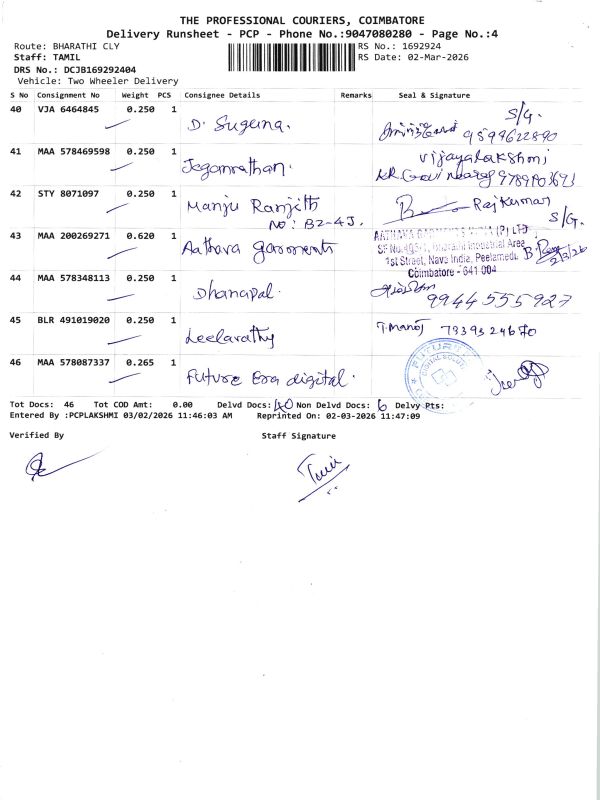 THE PROFESSIONAL COURIERS, COIMBATORE
Delivery Runsheet - PCP - Phone No.:9047080280 - Page No.:4
Route: BHARATHI CLY
RS No.: 1692924
Staff: TAMIL
RS Date: 02-Mar-2026
DRS No.: DCJB169292404
Vehicle: Two Wheeler Delivery
S No Consignment No Weight PCS Consignee Details Remarks Seal & Signature
40 VJA 6464845 0.250 1
D. Sugeina.
S/G.
9599622890
41 MAA 578469598 0.250 1
Jeganrathan.
Vijayalakshmi
9789803693
42 STY 8071097 0.250 1
Manju Ranjith
No: B2-4J.
Rajkumar
S/G.
43 MAA 200269271 0.620 1
Aathava garments
1st Street, Nava India, Peelamedu
Coimbatore - 641 004
2/3/26
44 MAA 578348113 0.250 1
Dhanapal.
9944555927
45 BLR 491019020 0.250 1
Leelavathy
T. Manoj 7939324670
46 MAA 578087337 0.265 1
Future Era digital.
Tot Docs: 46 Tot COD Amt: 0.00 Delvd Docs: 40 Non Delvd Docs: 6 Delvy Pts:
Entered By :PCPLAKSHMI 03/02/2026 11:46:03 AM Reprinted On: 02-03-2026 11:47:09
Verified By
Staff Signature